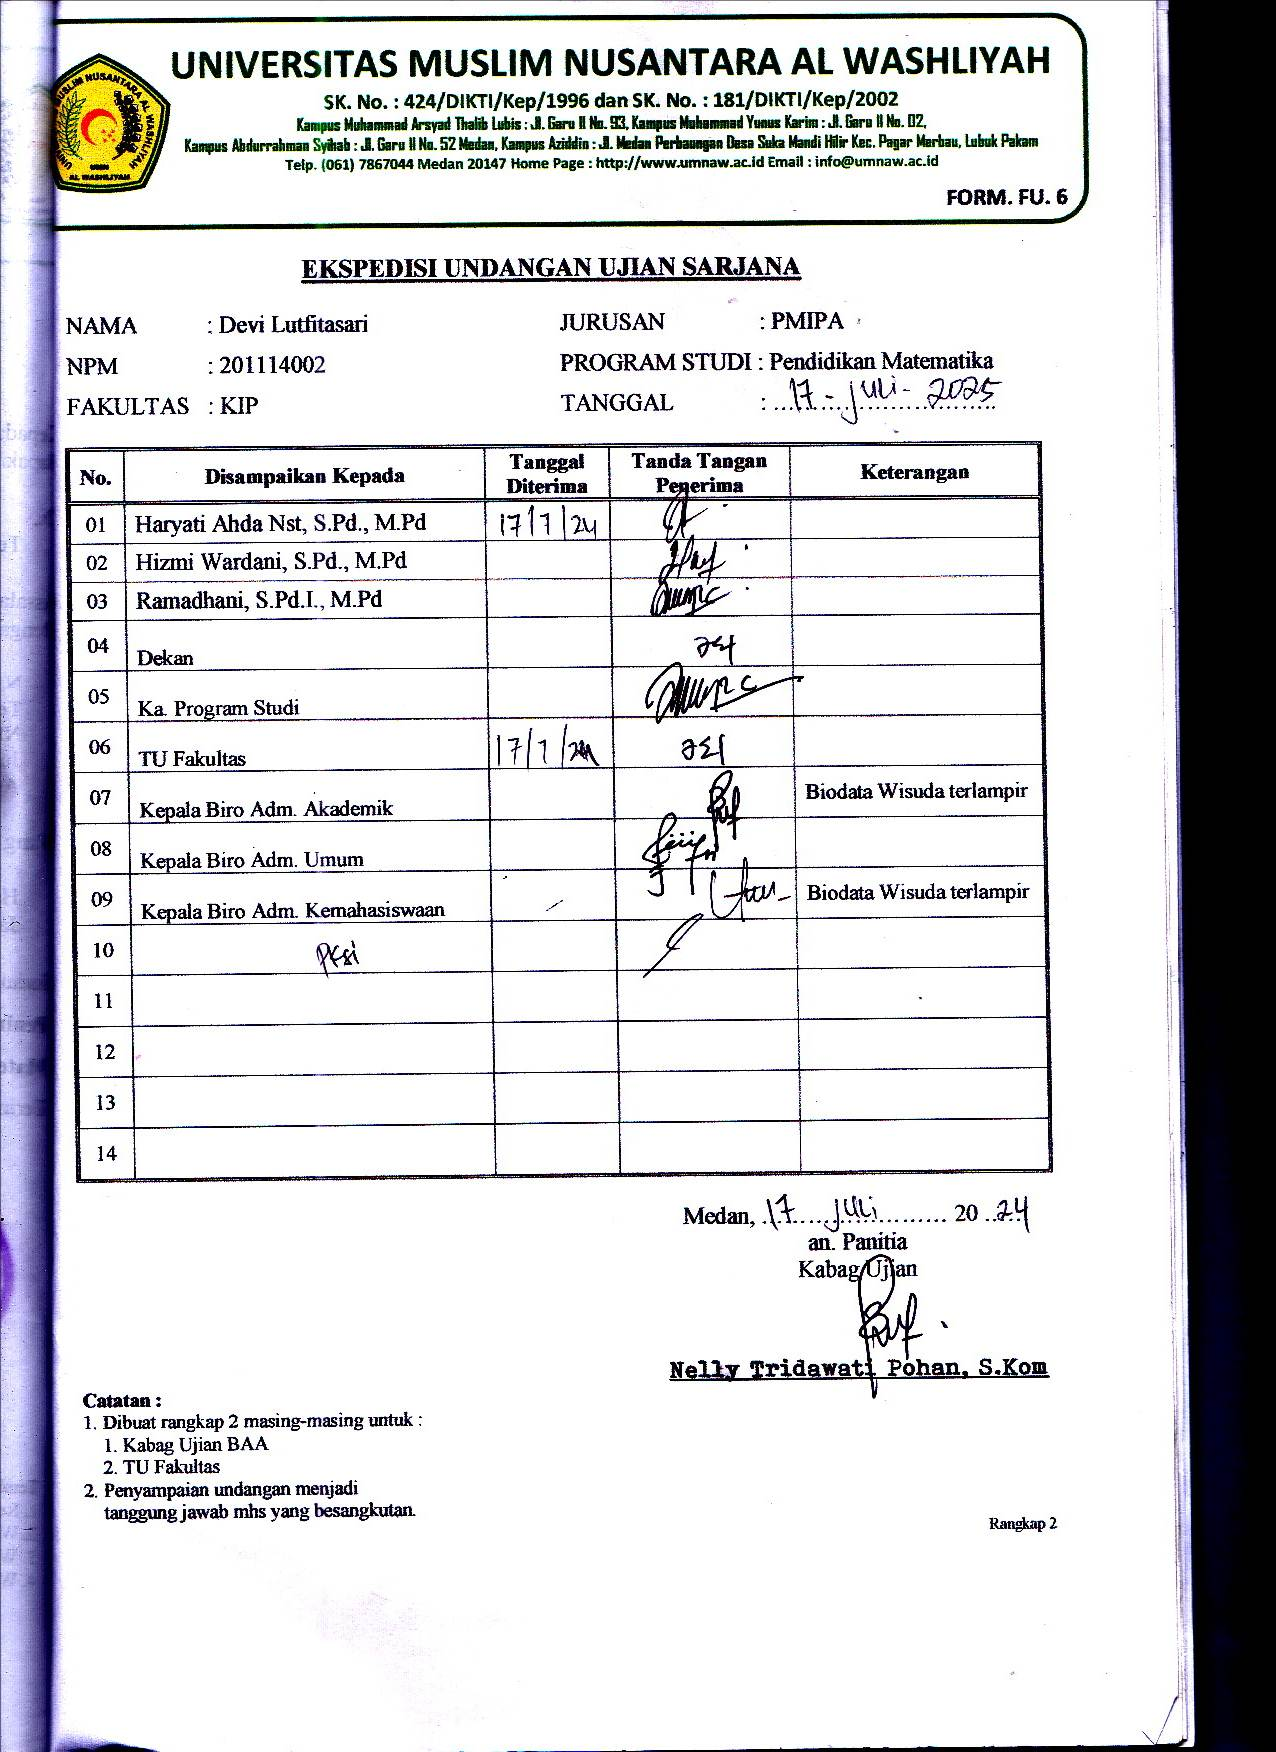 UNIVERSITAS MUSLIM NUSANTARA AL WASHLIYAH
SK. No. : 424/DIKTI/Kep/1996 dan SK. No. : 181/DIKTI/Kep/2002
Kampus Muhammad Arsyad Thalib Lubis : Jl. Garu II No. 93, Kampus Muhammad Yunus Karim : Jl. Garu II No. 02,
Kampus Abdurrahman Syihab : Jl. Garu II No. 52 Medan, Kampus Aziddin : Jl. Medan Perbaungan Desa Suka Mandi Hilir Kec. Pagar Merbau, Lubuk Pakam
Telp. (061) 7867044 Medan 20147 Home Page : http://www.umnaw.ac.id Email : info@umnaw.ac.id
FORM. FU. 6
EKSPEDISI UNDANGAN UJIAN SARJANA
NAMA : Devi Lutfitasari JURUSAN : PMIPA
NPM : 201114002 PROGRAM STUDI : Pendidikan Matematika
FAKULTAS : KIP TANGGAL : 17 - Juli - 2025
No. Disampaikan Kepada Tanggal Diterima Tanda Tangan Penerima Keterangan
01 Haryati Ahda Nst, S.Pd., M.Pd 17/7/24
02 Hizmi Wardani, S.Pd., M.Pd
03 Ramadhani, S.Pd.I., M.Pd
04 Dekan
05 Ka. Program Studi
06 TU Fakultas 17/7/24
07 Kepala Biro Adm. Akademik Biodata Wisuda terlampir
08 Kepala Biro Adm. Umum
09 Kepala Biro Adm. Kemahasiswaan Biodata Wisuda terlampir
10
11
12
13
14
Medan, 17 Juli 20 24
an. Panitia
Kabag Ujian
Nelly Tridawati Pohan, S.Kom
Catatan :
1. Dibuat rangkap 2 masing-masing untuk :
1. Kabag Ujian BAA
2. TU Fakultas
2. Penyampaian undangan menjadi
tanggung jawab mhs yang besangkutan.
Rangkap 2